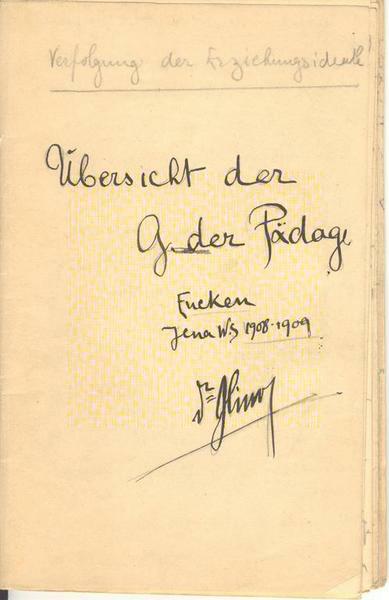 Verfolgung der Erziehungsideale!
Übersicht der
G. der Pädag.
Eucken
Jena WS 1908-1909
Dr Glinos